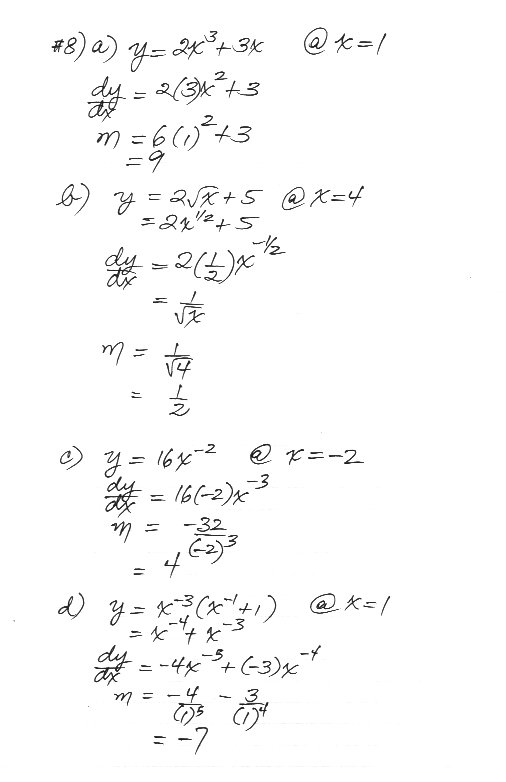 #8) a) y = 2x³ + 3x @ x = 1
dy/dx = 2(3)x² + 3
m = 6(1)² + 3
= 9
b) y = 2√x + 5 @ x = 4
= 2x^(1/2) + 5
dy/dx = 2(1/2)x^(-1/2)
= 1/√x
m = 1/√4
= 1/2
c) y = 16x⁻² @ x = -2
dy/dx = 16(-2)x⁻³
m = -32/(-2)³
= 4
d) y = x⁻³(x⁻¹ + 1) @ x = 1
= x⁻⁴ + x⁻³
dy/dx = -4x⁻⁵ + (-3)x⁻⁴
m = -4/(1)⁵ - 3/(1)⁴
= -7